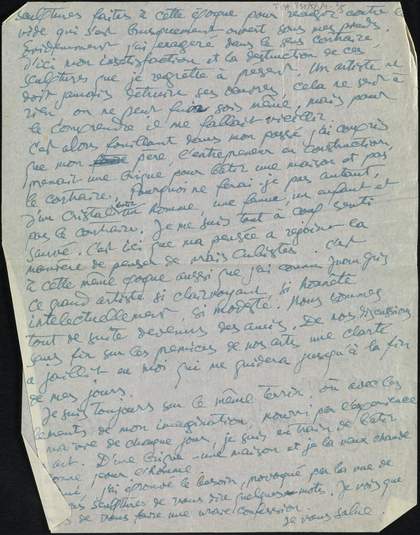 sculptures faites à cette époque pour réagir contre le
vide qui s'est brusquement ouvert sous mes pieds.
Evidemment j'ai exagéré dans le sens contraire
d'ici mon insatisfaction et la destruction de ces
sculptures que je regrette à présent. Un artiste ne
doit jamais détruire ses œuvres cela ne sert à
rien on ne peut soi même, mais pour
le comprendre il me fallait vieillir.
C'est alors fouillant dans mon passé j'ai compris
que mon père, l'entrepreneur en construction
prenait une brique pour bâtir une maison et pas
le contraire. Pourquoi ne ferai je pas autant,
d'un cristal bâtir un homme, une femme, un enfant et
pas le contraire. Je me suis tout à coup senti
sauvé. C'est ici que ma pensée a rejoint la
manière de penser de vrais cubistes. C'est
à cette même époque aussi que j'ai connu Juan Gris
ce grand artiste si clairvoyant, si honnête
intellectuellement, si modeste. Nous sommes
tout de suite devenus des amis. De nos discussions
sans fin sur les prémices de nos arts une clarté
a jaillit en moi qui me guidera jusqu'à la fin
de mes jours.
Je suis toujours sur le même terrin où avec les
éléments de mon imagination, nourri par l'expérience
de chaque jour, je suis en train de bâtir
art. D'une brique - une maison et je la veux chaude
bonne pour l'homme.
j'ai éprouvé le besoin, provoqué par la vue de
sculptures de vous dire quelques mots. Je vois que
de vous faire une vraie confession.
Je vous salue.